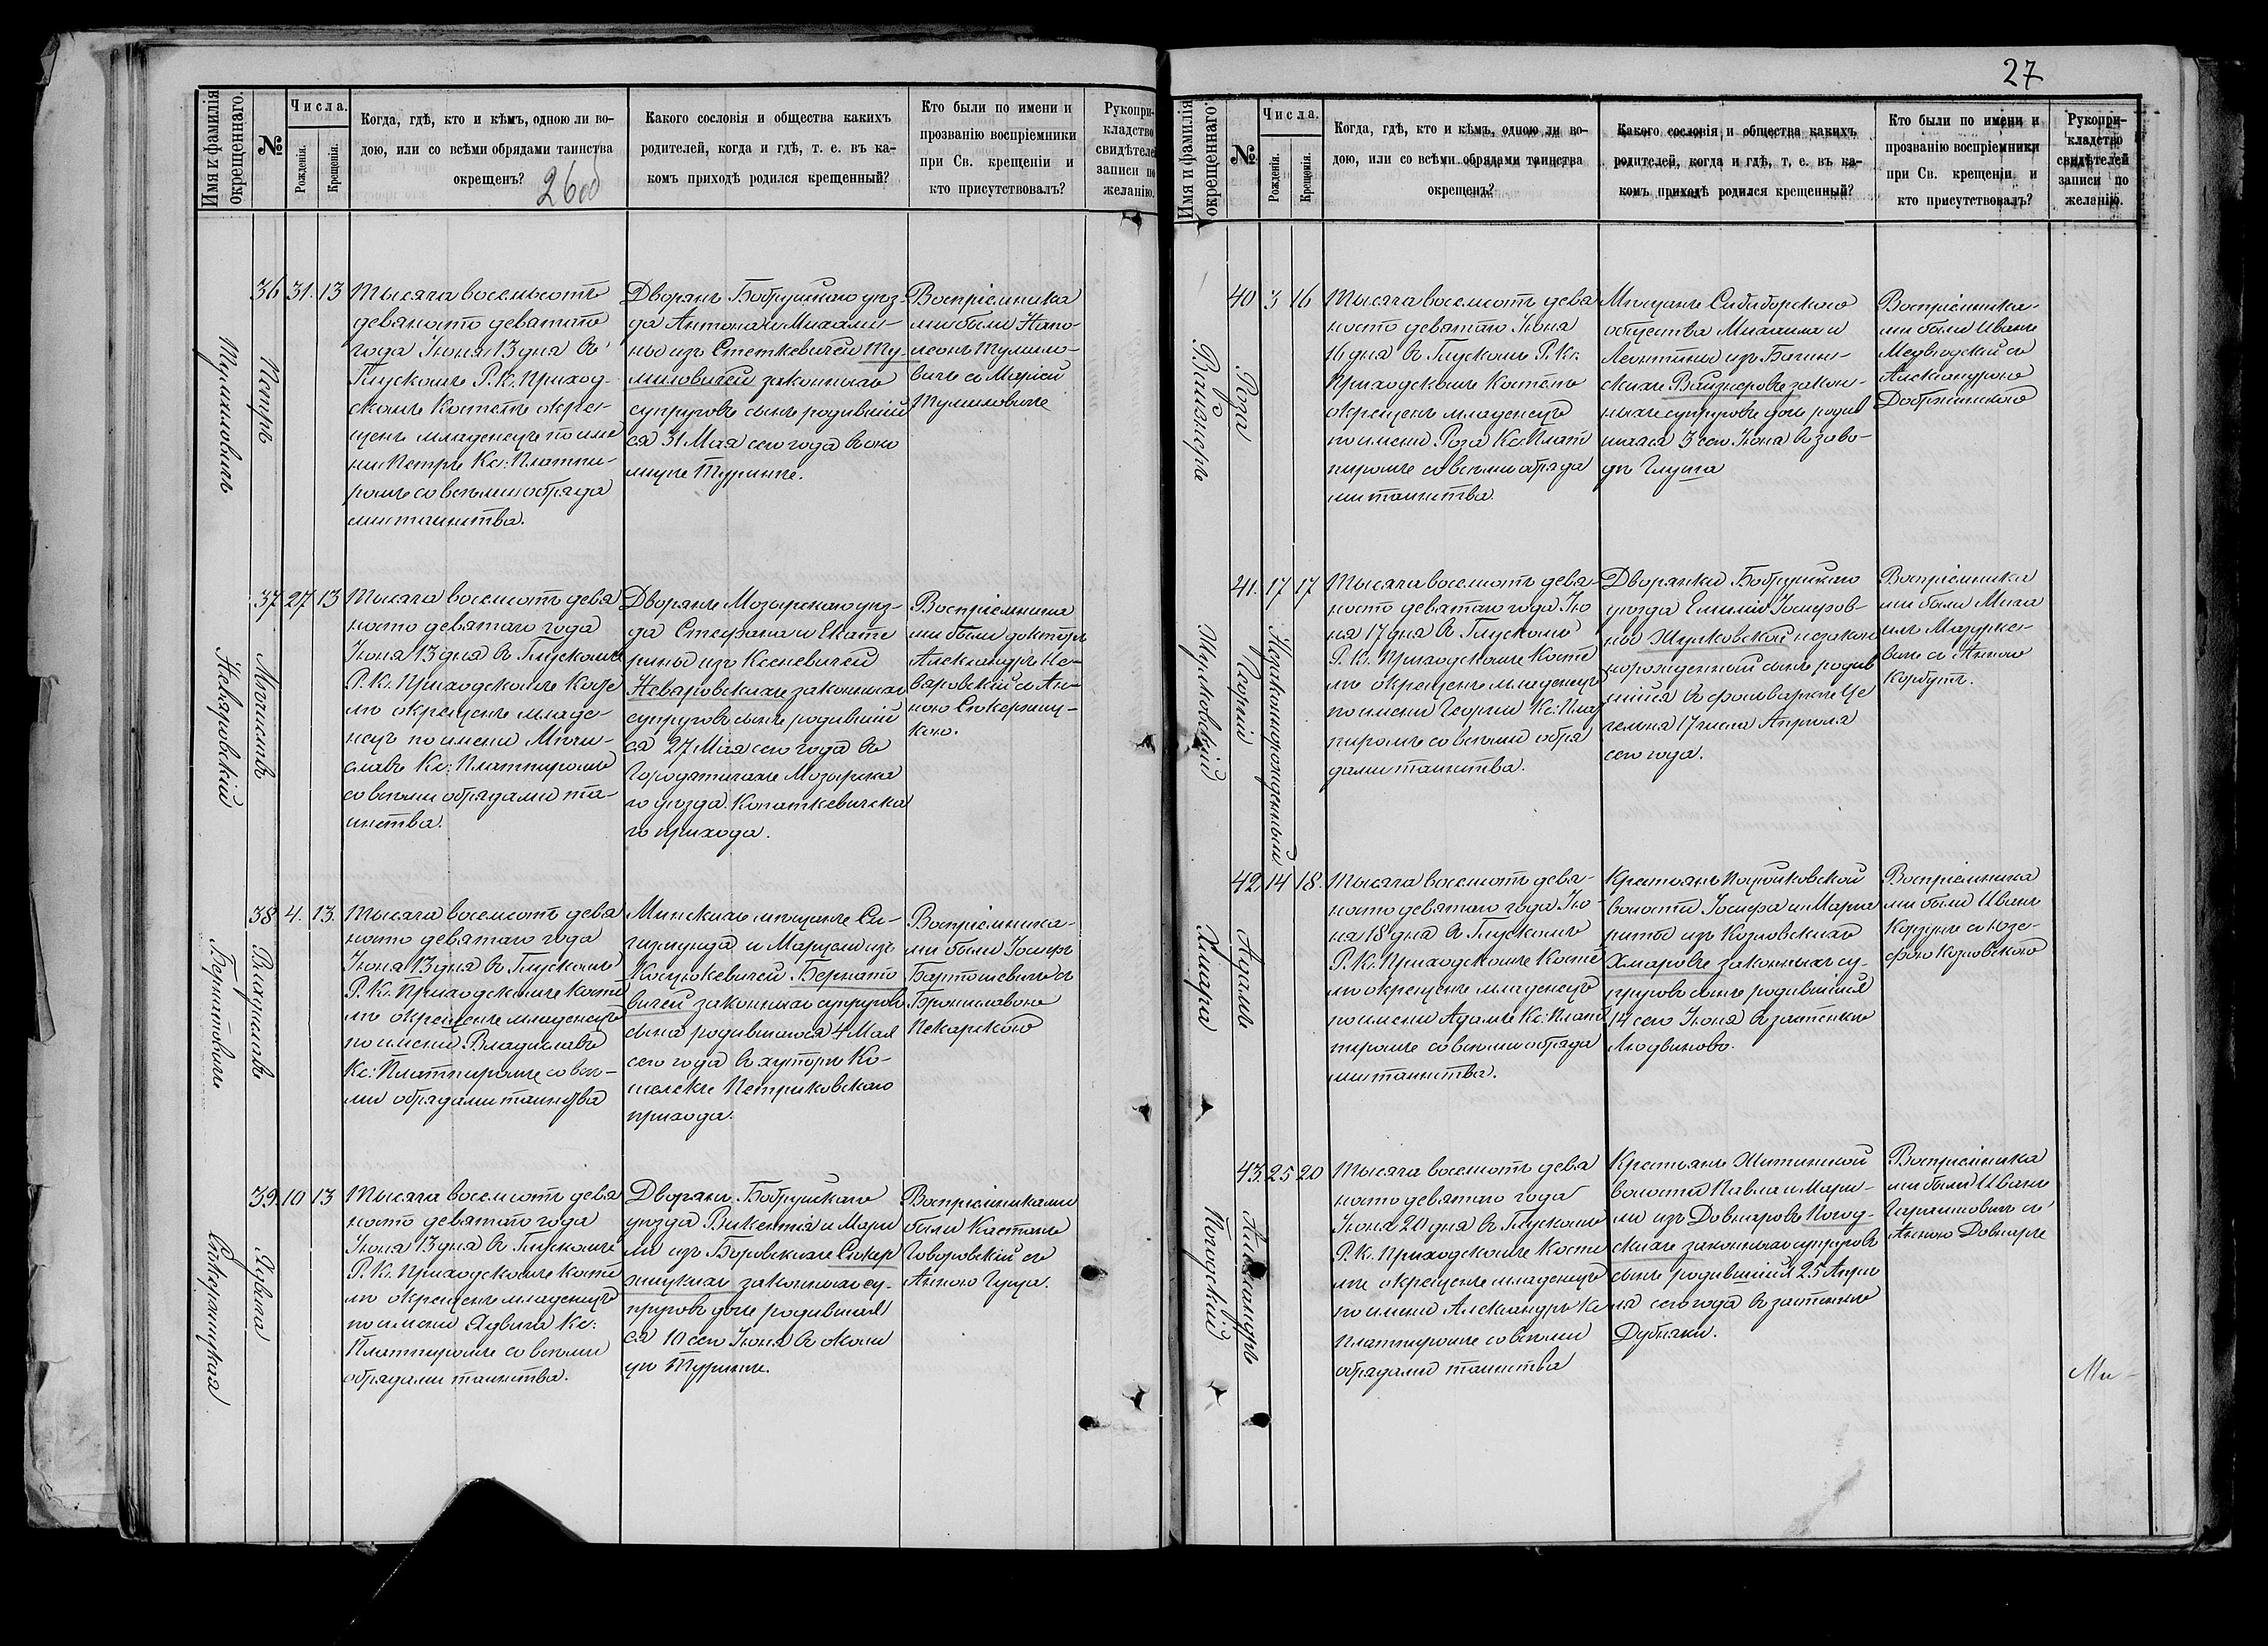 27
Имя и фамилія
окрещеннаго.
№
Числа.
Рожденія.
Крещенія.
Когда, гдѣ, кто и кѣмъ, одною ли во-
дою, или со всѣми обрядами таинства
окрещенъ?
260б
Какого сословія и общества какихъ
родителей, когда и гдѣ, т. е. въ ка-
комъ приходѣ родился крещенный?
Кто были по имени и
прозванію воспріемники
при Св. крещеніи и
кто присутствовалъ?
Рукопри-
кладство
свидѣтелей
записи по
желанію.
36 31. 13
Петръ
Тумиловичъ
Тысяча восемьсотъ
девяносто девятаго
года Іюня 13 дня въ
Глускомъ Р. К. Приход-
скомъ Костелѣ окре-
щенъ младенецъ по име
ни Петръ Кс: Платпи-
ромъ со всѣми обряда
ми таинства.
Дворянъ Бобруйскаго уѣз-
да Антона и Михали-
ны изъ Стеткевичей Ту-
миловичей законныхъ
супруговъ сынъ родившій
ся 31 Мая сего года въ око
лицѣ Туринѣ.
Воспріемника
ми были Напо-
леонъ Тумило-
вичъ съ Маріей
Тумиловичъ
37 27 13
Мечиславъ
Неваровскій
Тысяча восемсотъ девя
носто девятаго года
Іюня 13 дня въ Глускомъ
Р. К. Приходскомъ Косте
лѣ окрещенъ младе-
нецъ по имени Мечи-
славъ Кс: Платпиромъ
со всѣми обрядами та-
инства.
Дворянъ Мозырскаго уѣз-
да Стефана и Екате
рины изъ Ксеневичей
Неваровскихъ законныхъ
супруговъ сынъ родившій
ся 27 Мая сего года въ
Городятичахъ Мозырска
го уѣзда Копаткевичска
го прихода.
Воспріемника
ми были докторъ
Александръ Не-
варовскій съ Ан-
ною Стокержиц-
кою.
38 4. 13.
Владиславъ
Бернатовичъ
Тысяча восемсотъ девя
носто девятаго года
Іюня 13 дня въ Глускомъ
Р. К. Приходскомъ Косте
лѣ окрещенъ младенецъ
по имени Владиславъ
Кс: Платпиромъ со всѣ-
ми обрядами таинства
Минскихъ мѣщанъ Си-
гизмунда и Маріи изъ
Бернато
вичей законныхъ супруговъ
сына родившагося 4 Мая
сего года въ хуторѣ Ко-
Петриковскаго
прихода.
Воспріемника-
ми были Іосифъ
Бартошевичъ съ
Брониславою
Пекарскою
39. 10 13
Ядвига
Тысяча восемсотъ девя
носто девятаго года
Іюня 13 дня въ Глускомъ
Р. К. Приходскомъ Косте
лѣ окрещенъ младенецъ
по имени Ядвига Кс:
Платпиромъ со всѣми
обрядами таинства.
Дворянъ Бобруйскаго
уѣзда Викентія и Маріи
изъ Боровскихъ
законныхъ су-
пруговъ дочь родившая
ся 10 сего Іюня въ околи
цѣ Туринѣ.
Воспріемниками
были Каетанъ
Говоровскій съ
Анною Гуща.
Имя и фамилія
окрещеннаго.
№
Числа.
Рожденія.
Крещенія.
Когда, гдѣ, кто и кѣмъ, одною ли во-
дою, или со всѣми обрядами таинства
окрещенъ?
Какого сословія и общества какихъ
родителей, когда и гдѣ, т. е. въ ка-
комъ приходѣ родился крещенный?
Кто были по имени и
прозванію воспріемники
при Св. крещеніи и
кто присутствовалъ?
Рукопри-
кладство
свидѣтелей
записи по
желанію.
40 3 16
Роза
Вайзнеръ
Тысяча восемсотъ девя
носто девятаго Іюня
16 дня въ Глускомъ Р. К.
Приходскомъ Костелѣ
окрещенъ младенецъ
по имени Роза Кс: Плат
пиромъ со всѣми обряда
ми таинства.
Мѣщанъ
общества Михаила и
Леонтины изъ Багин-
скихъ Вайзнеровъ закон-
ныхъ супруговъ дочь родив
шаяся 3 сего Іюня въ заво-
дѣ Глуша
Воспріемника-
ми были Иванъ
Медведскій съ
Александрою
Добржинскою
41. 17 17
Незаконнорожденный
Георгій
Жуковскій
Тысяча восемсотъ девя-
носто девятаго года Ію
ня 17 дня въ Глускомъ
Р. К. Приходскомъ Косте
лѣ окрещенъ младенецъ
по имени Георгій Кс: Плат
пиромъ со всѣми обря
дами таинства.
Дворянки Бобруйскаго
уѣзда Емиліи Іосифов-
ны Жуковской незакон
норожденный сынъ родив
шійся въ фольваркѣ Це
гельня 17 числа Апрѣля
сего года.
Воспріемника
ми были Миха
илъ Мазурке-
вичъ съ Анною
Корбутъ.
42. 14 18.
Адамъ
Хмара
Тысяча восемсотъ девя-
носто девятаго года Ію
ня 18 дня въ Глускомъ
Р. К. Приходскомъ Косте
лѣ окрещенъ младенецъ
по имени Адамъ Кс: Плат
пиромъ со всѣми обряда
ми таинства.
Крестьянъ
волости Іосифа и Марга
риты изъ Козловскихъ
Хмаровъ законныхъ су-
пруговъ сынъ родившійся
14 сего Іюня въ застенкѣ
Людвиково.
Воспріемника
ми были Иванъ
Корзунъ съ Юзе-
фою Козловскою
43. 25 20
Александръ
Погодскій
Тысяча восемсотъ девя
носто девятаго года
Іюня 20 дня въ Глускомъ
Р. К. Приходскомъ Косте
лѣ окрещенъ младенецъ
по имени Александръ Кс
Платпиромъ со всѣми
обрядами таинства
Крестьянъ Житинской
волости Павла и Мари-
и изъ Довнаровъ Погод-
скихъ законныхъ супруговъ
сынъ родившійся 25 Апрѣ
ля сего года въ застенкѣ
Дубняки.
Воспріемника
ми были Иванъ
съ
Анною Довнаръ
Ми-